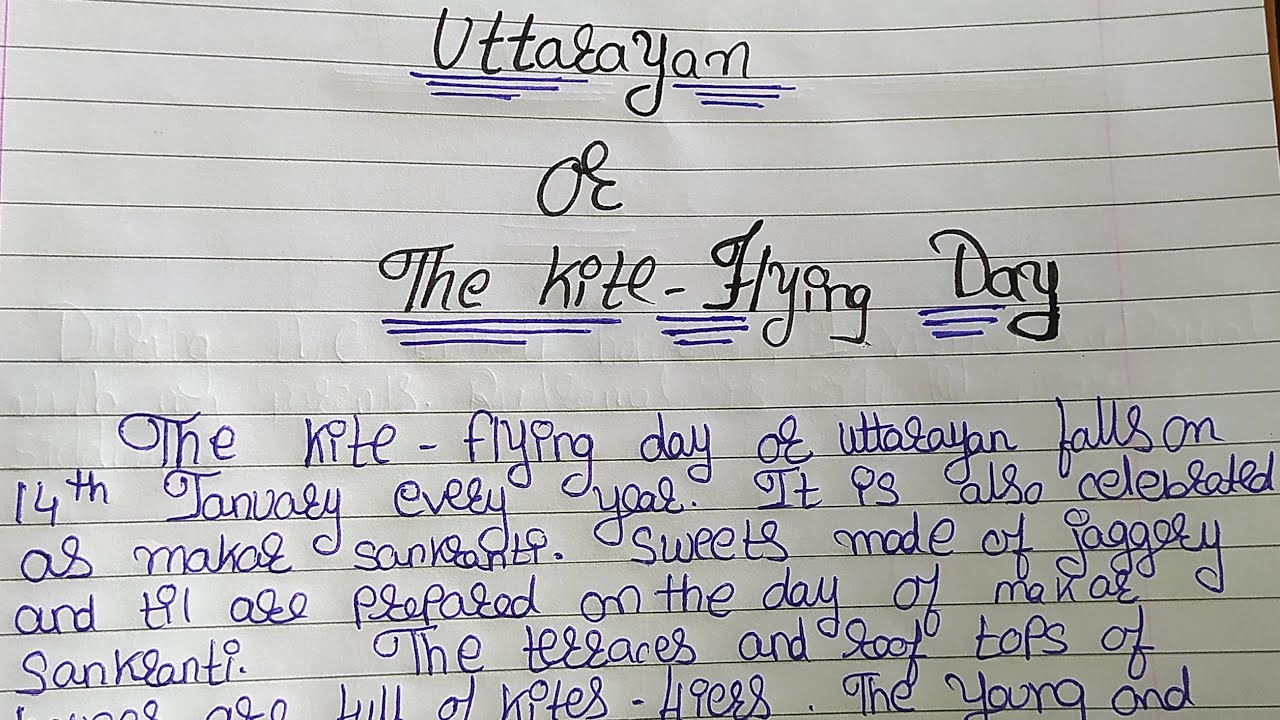 Uttarayan
Or
The Kite-Flying Day
The kite-flying day or uttarayan falls on
14th January every year. It is also celebrated
as makar sankranti. Sweets made of jaggery
and til are prepared on the day of makar
Sankranti. The terraces and roof tops of
are full of kites-fliers. The young and